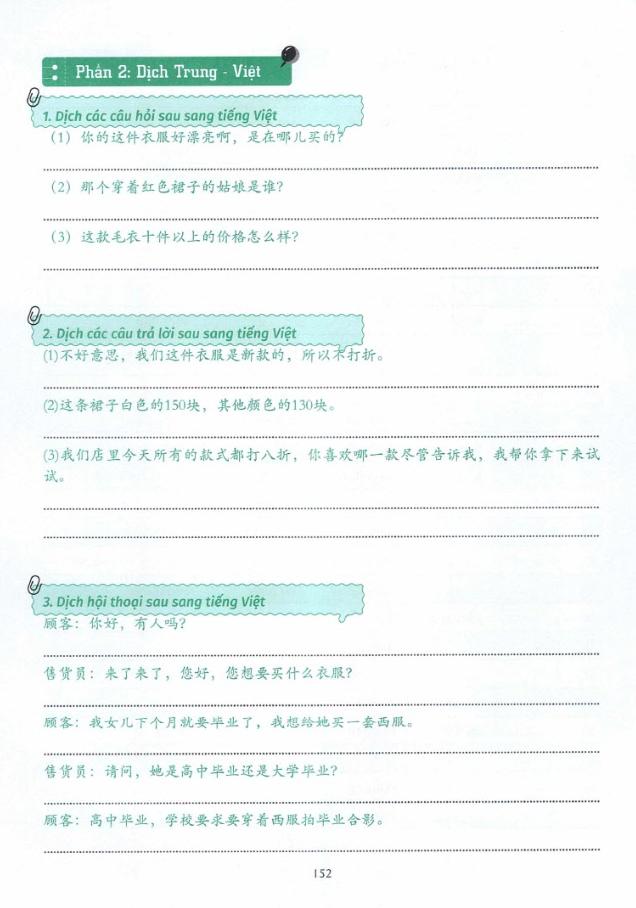 Phần 2: Dịch Trung - Việt
1. Dịch các câu hỏi sau sang tiếng Việt
（1）你的这件衣服好漂亮啊，是在哪儿买的？
（2）那个穿着红色裙子的姑娘是谁？
（3）这款毛衣十件以上的价格怎么样？
2. Dịch các câu trả lời sau sang tiếng Việt
(1)不好意思，我们这件衣服是新款的，所以不打折。
(2)这条裙子白色的150块，其他颜色的130块。
(3)我们店里今天所有的款式都打八折，你喜欢哪一款尽管告诉我，我帮你拿下来试
试。
3. Dịch hội thoại sau sang tiếng Việt
顾客：你好，有人吗？
售货员：来了来了，您好，您想要买什么衣服？
顾客：我女儿下个月就要毕业了，我想给她买一套西服。
售货员：请问，她是高中毕业还是大学毕业？
顾客：高中毕业，学校要求要穿着西服拍毕业合影。
152